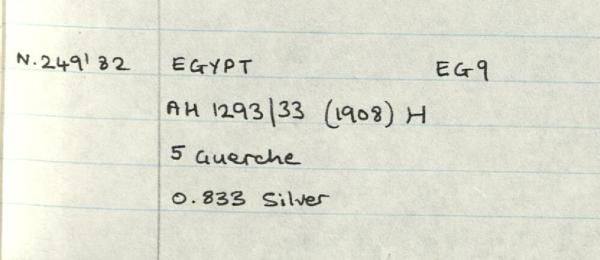 N.249'82 EGYPT EG9
AH 1293/33 (1908) H
5 Guerche
0.833 Silver